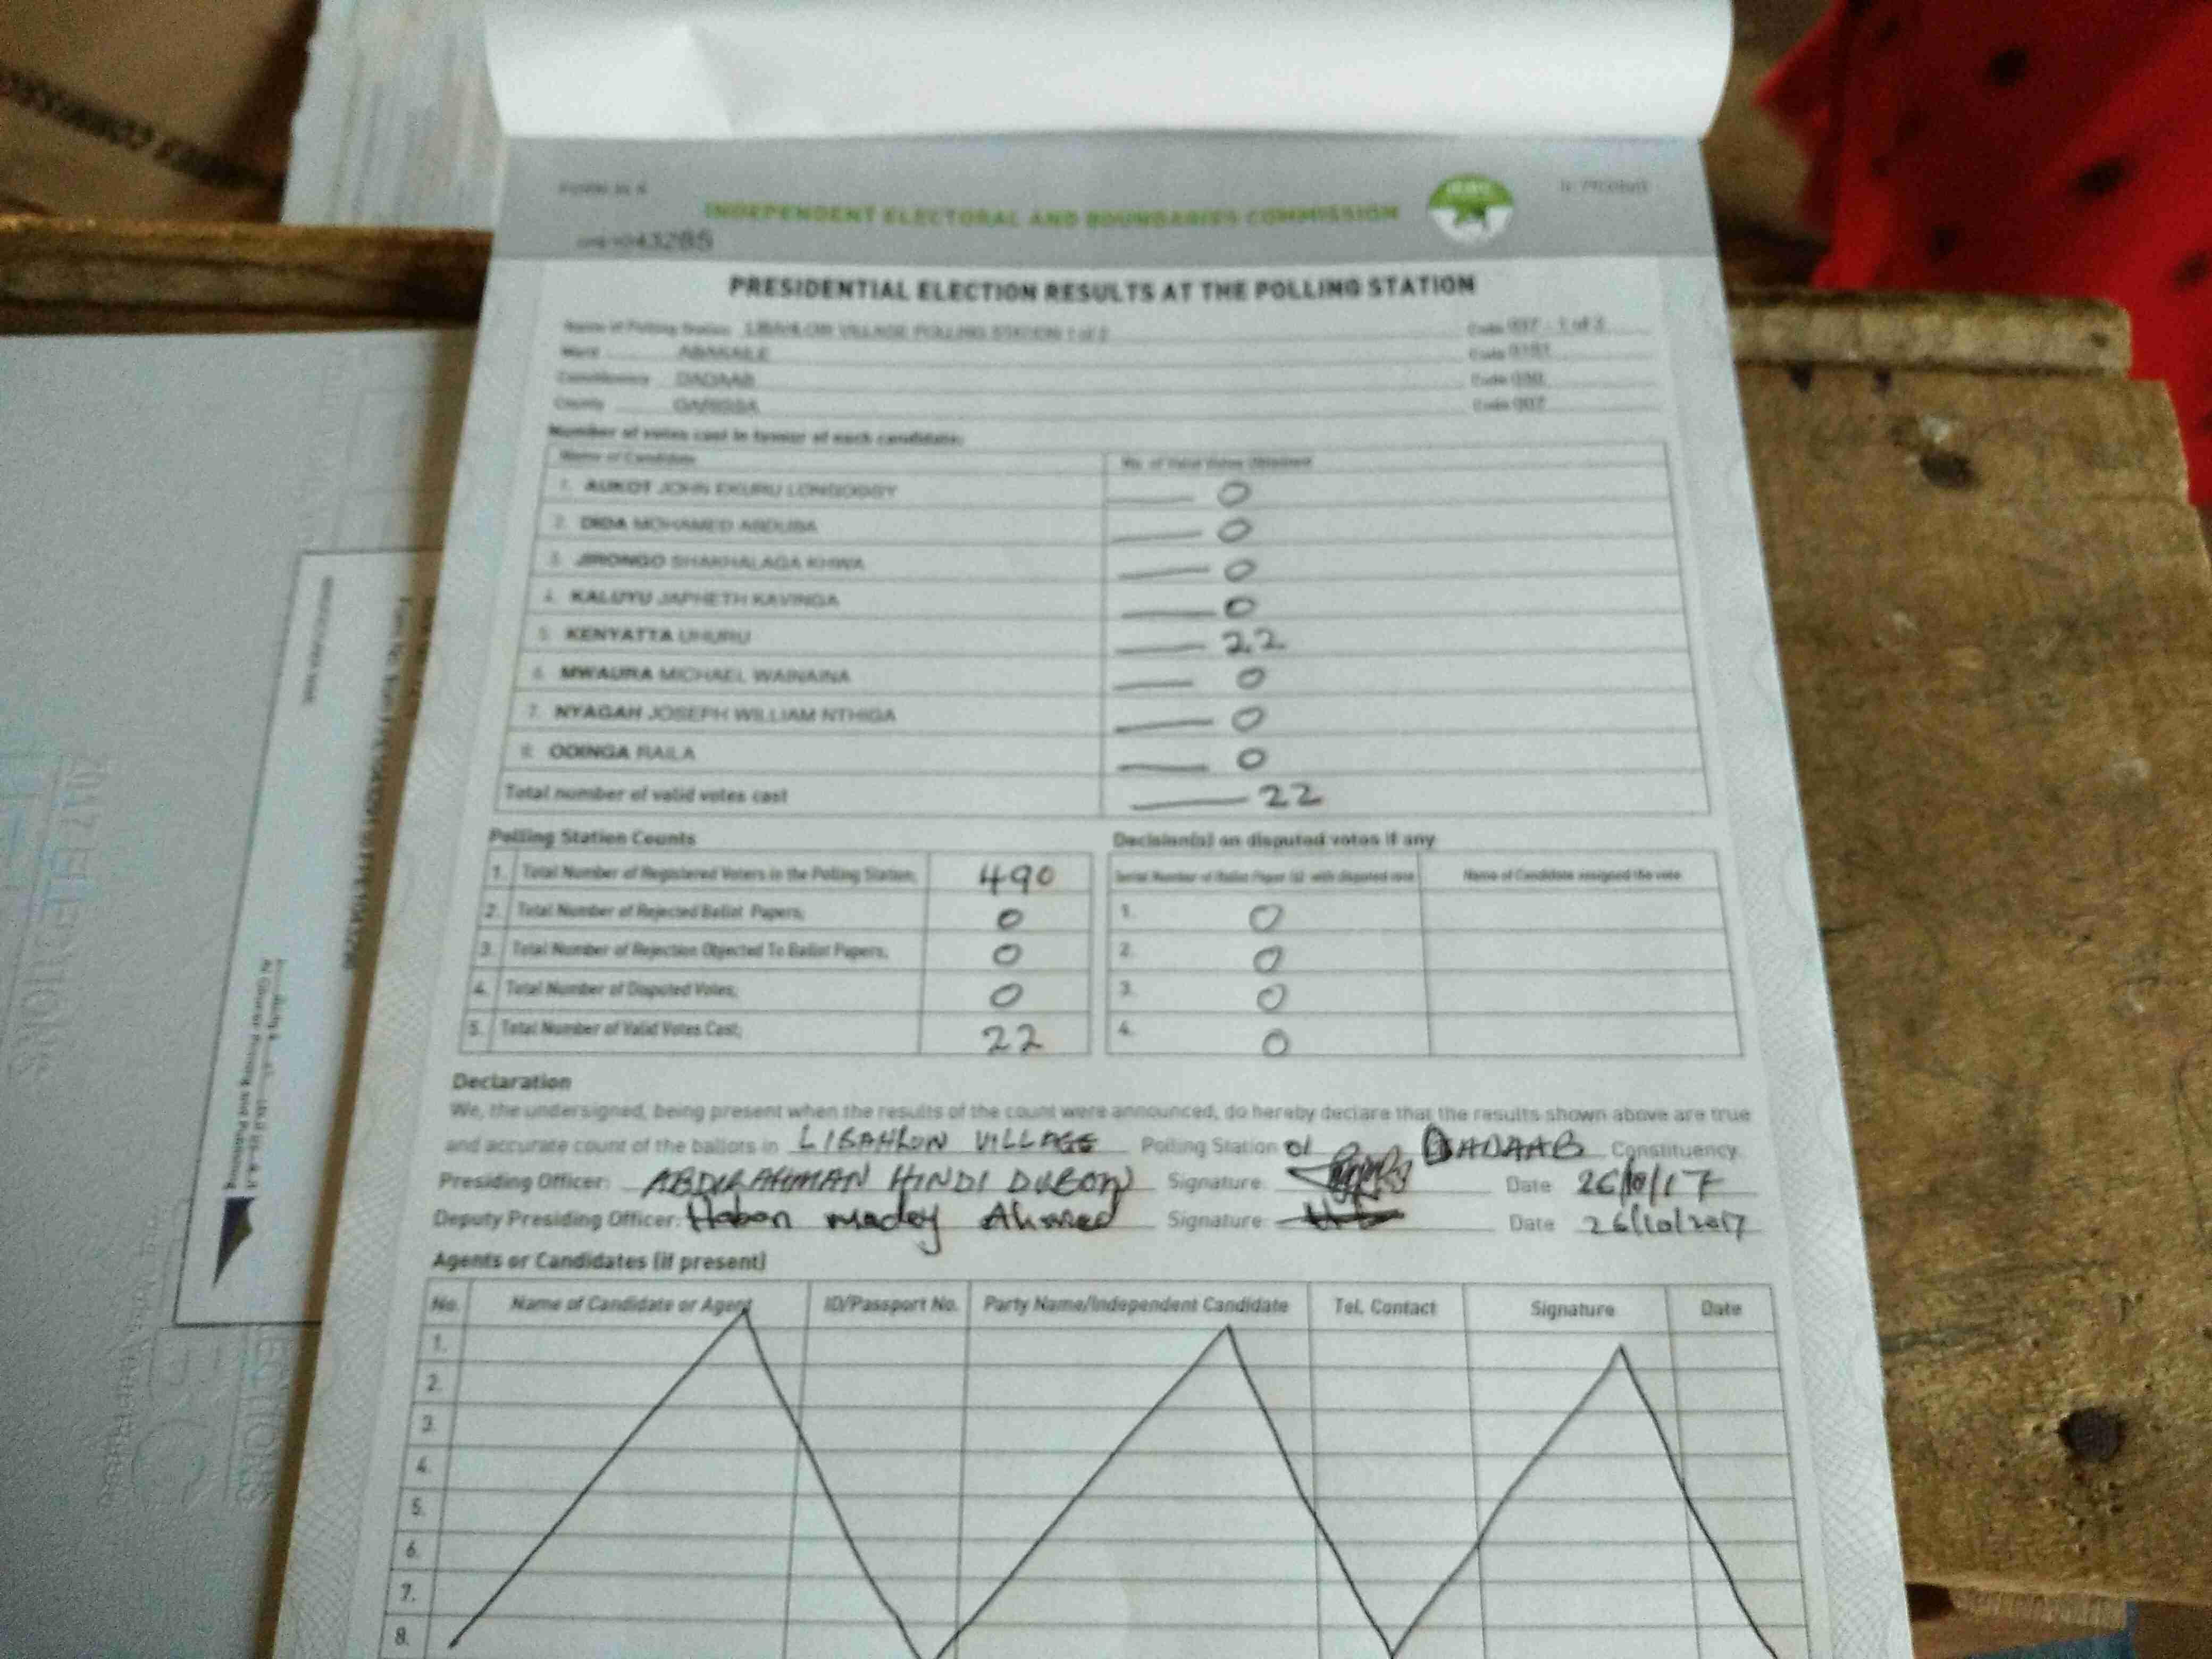 FORM 34 A
INDEPENDENT ELECTORAL AND BOUNDARIES COMMISSION
43285
PRESIDENTIAL ELECTION RESULTS AT THE POLLING STATION
Name of Polling Station VILLAGE POLLING STATION 1 of 2 Code 037 - 1 of 2
Ward Code
Constituency DADAAB Code
County GARISSA Code 007
Number of votes cast in favour of each candidate:
Name of Candidate No. of Valid Votes Obtained
1. AUKOT JOHN EKURU LONGOGGY 0
2. DIDA MOHAMED ABDUBA 0
3. JIRONGO SHAKHALAGA KHWA 0
4. KALUYU JAPHETH KAVINGA 0
5. KENYATTA UHURU 22
6. MWAURA MICHAEL WAINAINA 0
7. NYAGAH JOSEPH WILLIAM NTHIGA 0
8. ODINGA RAILA 0
Total number of valid votes cast 22
Polling Station Counts
1. Total Number of Registered Voters in the Polling Station; 490
2. Total Number of Rejected Ballot Papers; 0
3. Total Number of Rejection Objected To Ballot Papers; 0
4. Total Number of Disputed Votes; 0
5. Total Number of Valid Votes Cast; 22
Decision(s) on disputed votes if any
Serial Number of Ballot Paper (s) with disputed vote Name of Candidate assigned the vote
1. 0
2. 0
3. 0
4. 0
Declaration
We, the undersigned, being present when the results of the count were announced, do hereby declare that the results shown above are true
and accurate count of the ballots in LIBAHLON VILLAGE Polling Station 01 DADAAB Constituency.
Presiding Officer: ABDIRAHMAN HINDI DUBOW Signature: Date 26/10/17
Deputy Presiding Officer: Habon madey Ahmed Signature: Date 26/10/2017
Agents or Candidates (if present)
No. Name of Candidate or Agent ID/Passport No. Party Name/Independent Candidate Tel. Contact Signature Date
1.
2.
3.
4.
5.
6.
7.
8.